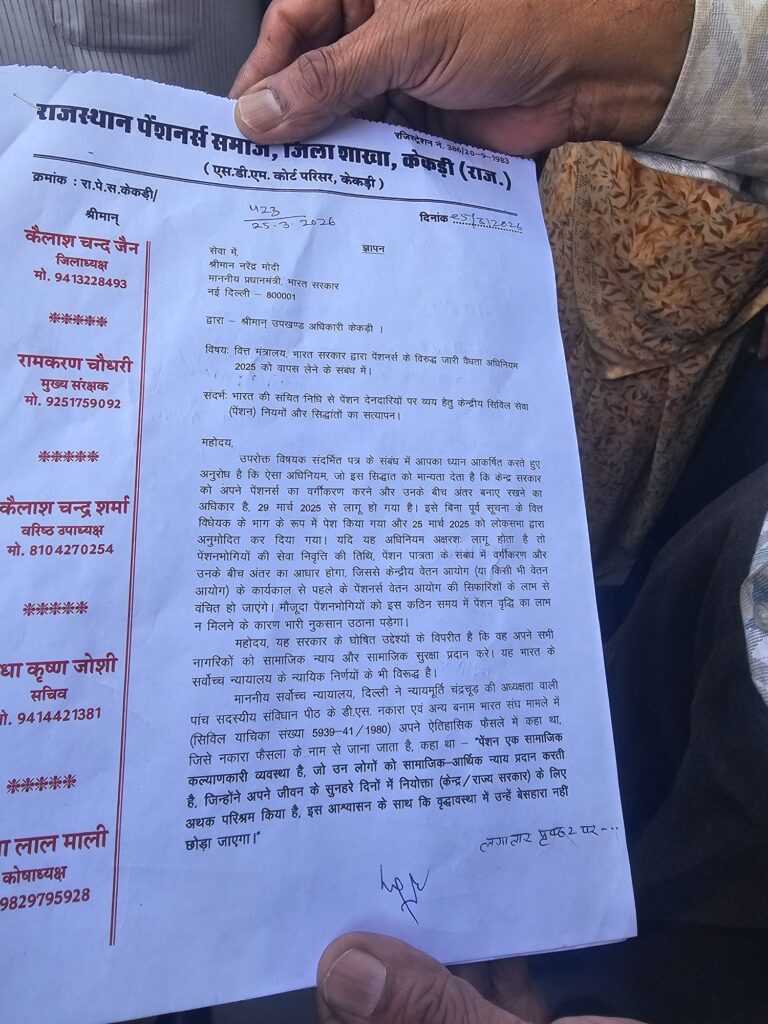 राजस्थान पेंशनर्स समाज, जिला शाखा, केकड़ी (राज.)
रजिस्ट्रेशन नं. 386/20-9-1983
(एस.डी.एम. कोर्ट परिसर, केकड़ी)
क्रमांक : रा.पे.स.केकड़ी/
423
25.3.2026
दिनांक 25/3/2026
श्रीमान्
कैलाश चन्द जैन
जिलाध्यक्ष
मो. 9413228493
रामकरण चौधरी
मुख्य संरक्षक
मो. 9251759092
कैलाश चन्द्र शर्मा
वरिष्ठ उपाध्यक्ष
मो. 8104270254
धा कृष्ण जोशी
सचिव
मो. 9414421381
लाल माली
कोषाध्यक्ष
9829795928
ज्ञापन
सेवा में,
श्रीमान नरेंद्र मोदी
माननीय प्रधानमंत्री, भारत सरकार
नई दिल्ली – 800001
द्वारा – श्रीमान् उपखण्ड अधिकारी केकड़ी ।
विषय: वित्त मंत्रालय, भारत सरकार द्वारा पेंशनर्स के विरुद्ध जारी वैधता अधिनियम
2025 को वापस लेने के संबंध में।
संदर्भ: भारत की संचित निधि से पेंशन देनदारियों पर व्यय हेतु केन्द्रीय सिविल सेवा
(पेंशन) नियमों और सिद्धांतों का सत्यापन।
महोदय,
उपरोक्त विषयक संदर्भित पत्र के संबंध में आपका ध्यान आकर्षित करते हुए
अनुरोध है कि ऐसा अधिनियम, जो इस सिद्धात को मान्यता देता है कि केन्द्र सरकार
को अपने पेंशनर्स का वर्गीकरण करने और उनके बीच अंतर बनाए रखने का
अधिकार है, 29 मार्च 2025 से लागू हो गया है। इसे बिना पूर्व सूचना के वित्त
विधेयक के भाग के रूप में पेश किया गया और 25 मार्च 2025 को लोकसभा द्वारा
अनुमोदित कर दिया गया। यदि यह अधिनियम अक्षरशः लागू होता है तो
पेंशनभोगियों की सेवा निवृत्ति की तिथि, पेंशन पात्रता के संबंध में वर्गीकरण और
उनके बीच अंतर का आधार होगा, जिससे केन्द्रीय वेतन आयोग (या किसी भी वेतन
आयोग) के कार्यकाल से पहले के पेंशनर्स वेतन आयोग की सिफारिशों के लाभ से
वंचित हो जाएंगे। मौजूदा पेंशनभोगियों को इस कठिन समय में पेंशन वृद्धि का लाभ
न मिलने के कारण भारी नुकसान उठाना पड़ेगा।
महोदय, यह सरकार के घोषित उद्देश्यों के विपरीत है कि वह अपने सभी
नागरिकों को सामाजिक न्याय और सामाजिक सुरक्षा प्रदान करे। यह भारत के
सर्वोच्च न्यायालय के न्यायिक निर्णयों के भी विरूद्ध है।
माननीय सर्वोच्च न्यायालय, दिल्ली ने न्यायमूर्ति चंद्रचूड़ की अध्यक्षता वाली
पांच सदस्यीय संविधान पीठ के डी.एस. नकारा एवं अन्य बनाम भारत संघ मामले में
(सिविल याचिका संख्या 5939-41/1980) अपने ऐतिहासिक फैसले में कहा था,
जिसे नकारा फैसला के नाम से जाना जाता है, कहा था – "पेंशन एक सामाजिक
कल्याणकारी व्यवस्था है, जो उन लोगों को सामाजिक-आर्थिक न्याय प्रदान करती
है, जिन्होंने अपने जीवन के सुनहरे दिनों में नियोक्ता (केन्द्र/राज्य सरकार) के लिए
अथक परिश्रम किया है, इस आश्वासन के साथ कि वृद्धावस्था में उन्हें बेसहारा नहीं
छोड़ा जाएगा।"
लगातार पृष्ठ 2 पर...